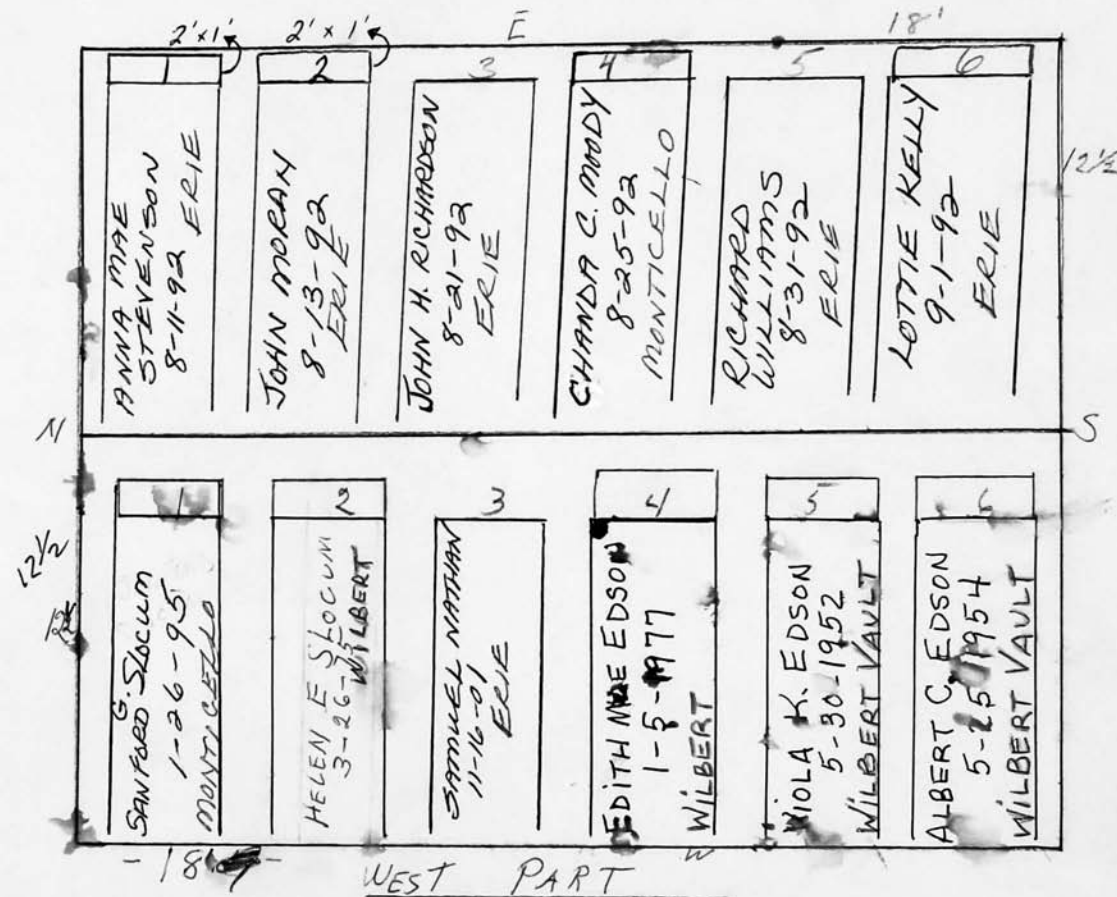 2'x1' 2'x1' E 18'
1 2 3 4 5 6
ANNA MAE
STEVENSON
8-11-92 ERIE
JOHN MORAN
8-13-92
ERIE
JOHN H. RICHARDSON
8-21-92
ERIE
CHANDA C. MOODY
8-25-92
MONTICELLO
RICHARD
WILLIAMS
8-31-92
ERIE
LOTTIE KELLY
9-1-92
ERIE
12½
N
S
1 2 3 4 5 6
12½
SANFORD G. SLOCUM
1-26-95
MONTICELLO
HELEN E SLOCUM
3-26-75
WILBERT
SAMUEL NATHAN
11-16-01
ERIE
EDITH MAE EDSON
1-5-1977
WILBERT
VIOLA K. EDSON
5-30-1952
WILBERT VAULT
ALBERT C. EDSON
1954
WILBERT VAULT
-18
W
WEST PART